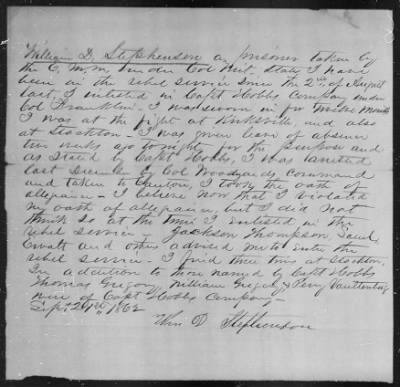 William D. Stephenson a prisoner taken by
the E. M. M. under Col states I have
been in the rebel service since the 2nd of August
last, I enlisted in Capt Hobbs Company under
Col Franklin - I was sworn in for twelve months
I was at the fight at Kirksville, and also
at Stockton - I was given leave of absence
two weeks ago tonight for the purpose and
as stated by Capt Hobbs, I was arrested
last December by Col Woodyards command
and taken to Canton, I took the oath of
allegiance - I believe now that I violated
my oath of allegiance, but I did not
think so at the time I enlisted in the
rebel service - Jackson Thompson, Saml
and others advised me to enter the
rebel service - I fired three times at Stockton.
In addition to those named by Capt Hobbs
Thomas Gregory, William Gregory & Perry
were of Capt Hobbs Company -
Sept 24th 1862
Wm D Stephenson